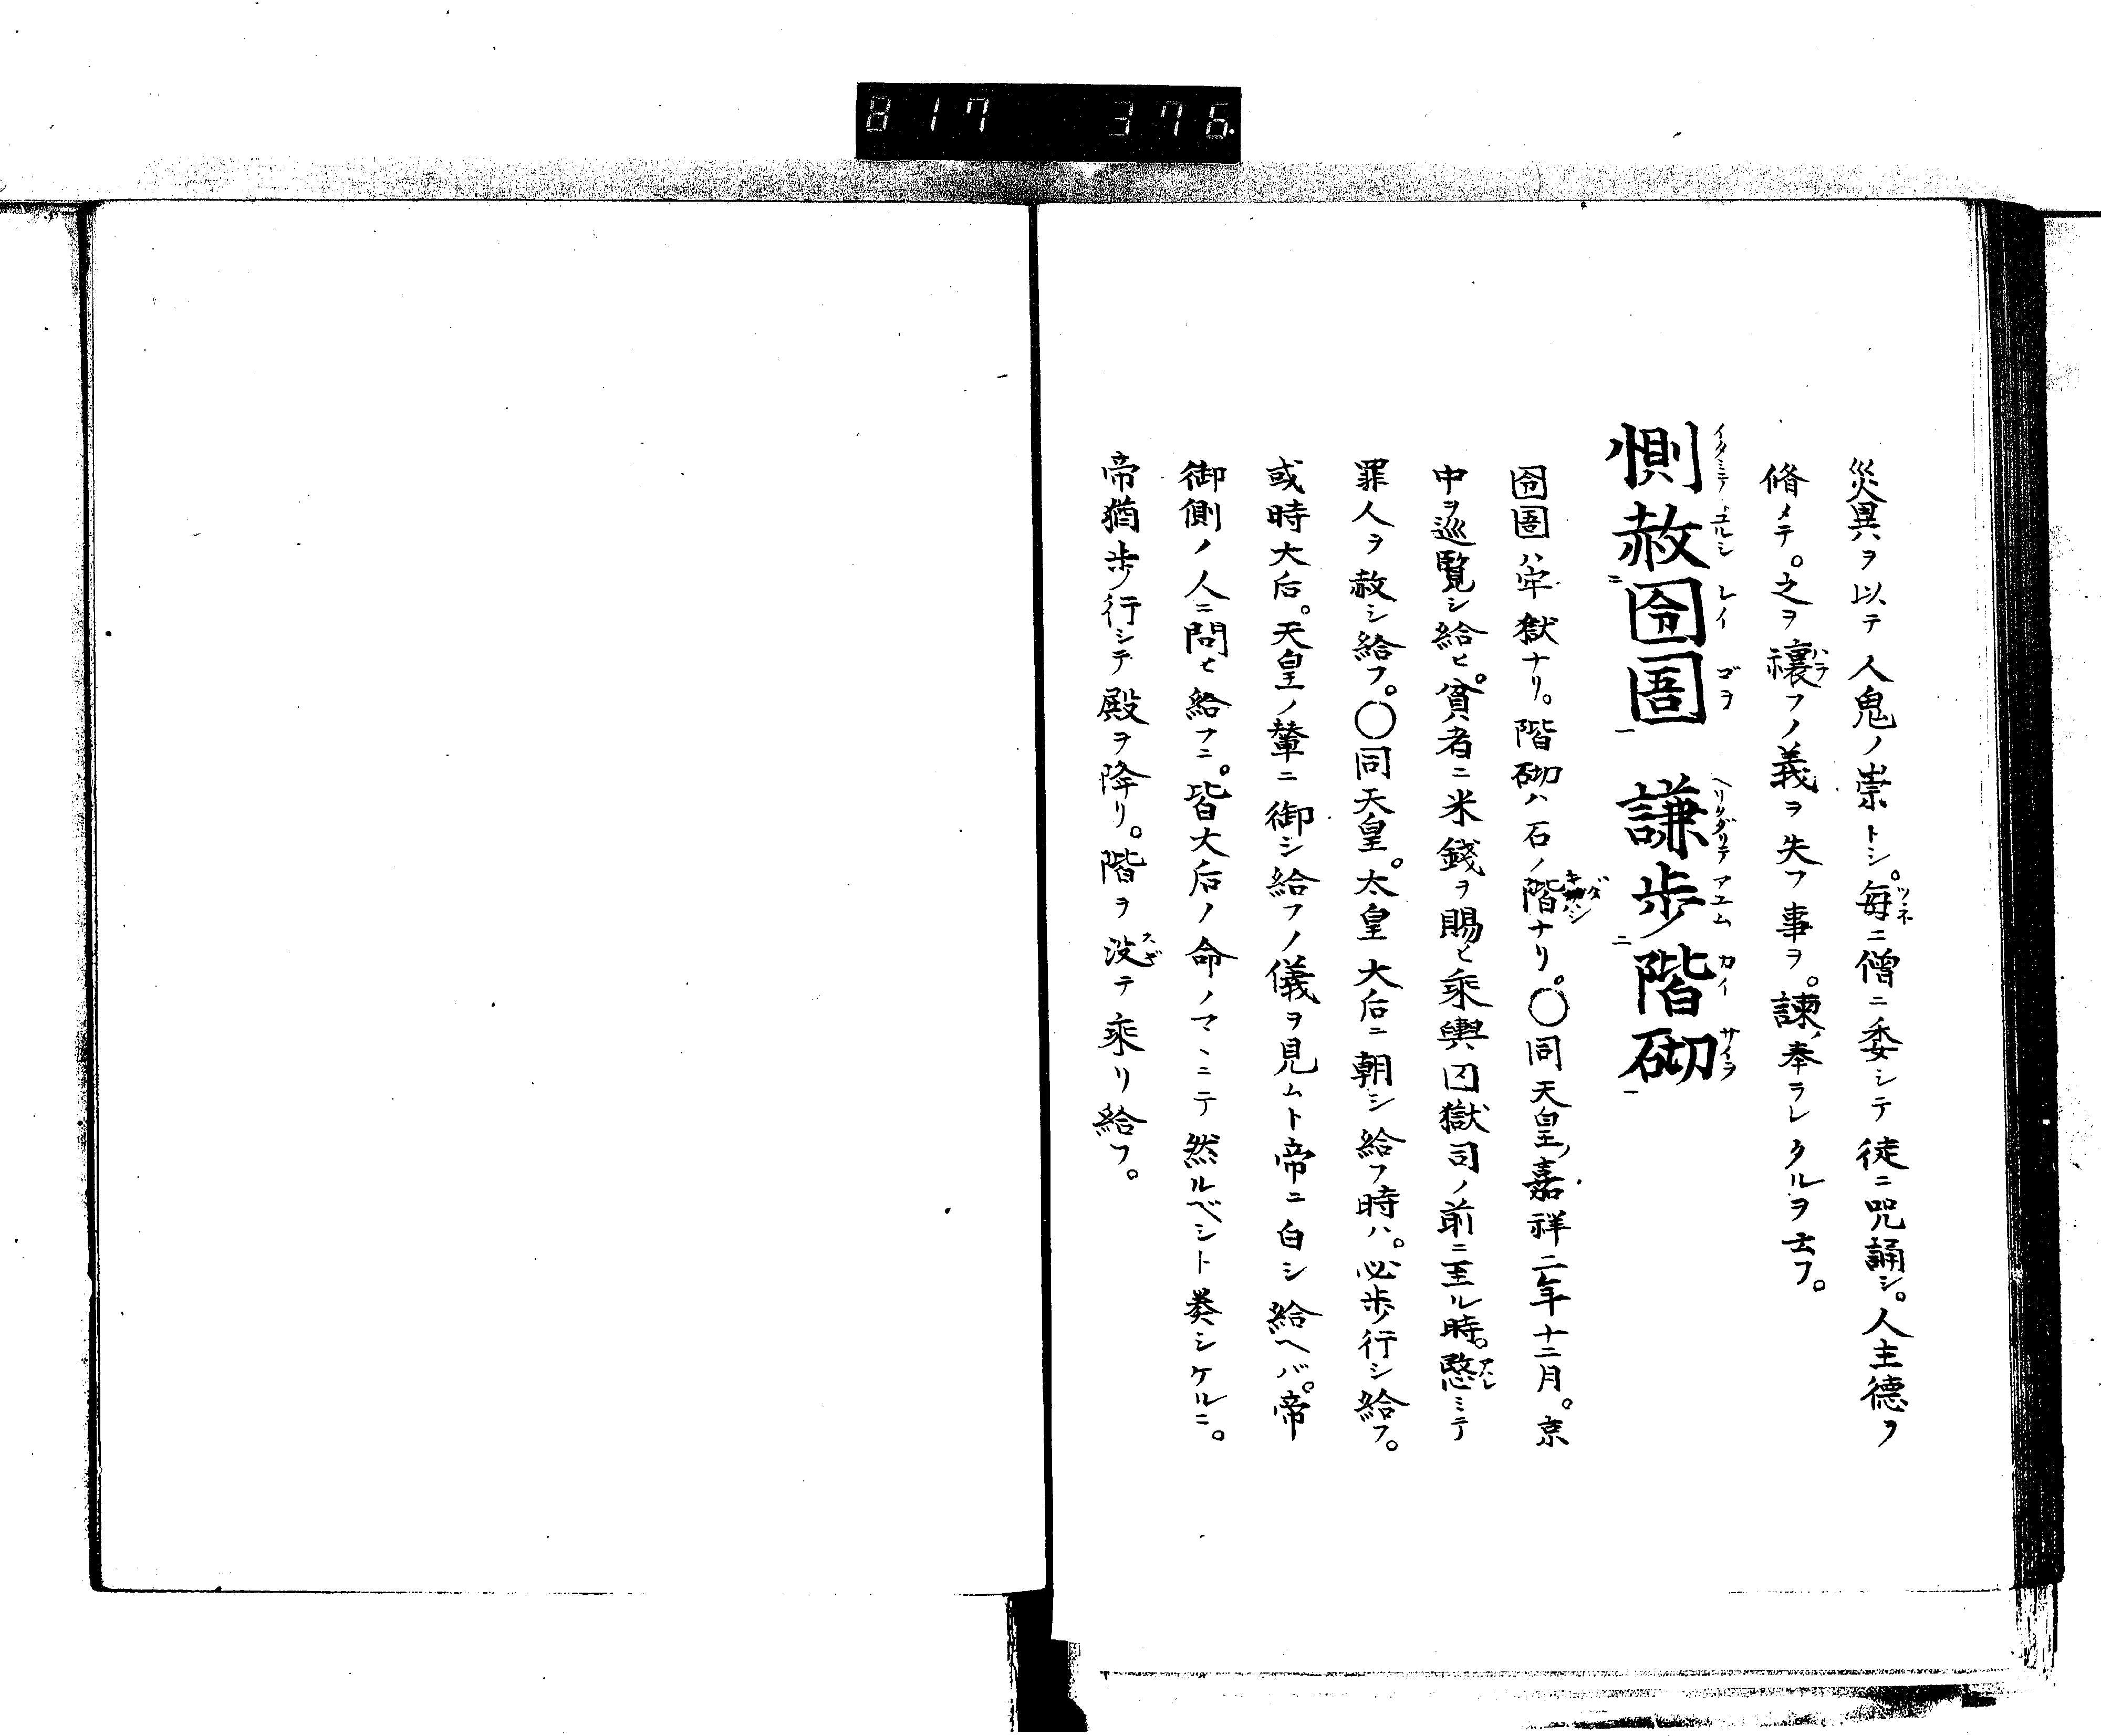 817 376.
災異ヲ以テ人鬼ノ祟トシ。毎ニ僧ニ委シテ徒ニ咒誦シ。人主德ヲ
脩メテ。之ヲ禳フノ義ヲ失フ事ヲ。諫メ奉ラレタルヲ云フ。
惻赦囹圄 謙歩階砌
囹圄ハ牢獄ナリ。階砌ハ石ノ階ナリ。〇同天皇ノ嘉祥二年十二月。京
中ヲ巡覧シ給ヒ。貧者ニ米錢ヲ賜ヒ乘輿囚獄司ノ前ニ至ル時。愍ミテ
罪人ヲ赦シ給フ。〇同天皇。太皇大后ニ朝シ給フ時ハ。必歩行シ給フ。
或時大后。天皇ノ輦ニ御シ給フノ儀ヲ見ムト帝ニ白シ給ヘバ。帝
御側ノ人ニ問ヒ給フニ。皆大后ノ命ノマヽニテ然ルベシト奏シケルニ。
帝猶歩行シテ殿ヲ降リ。階ヲ没テ乘リ給フ。